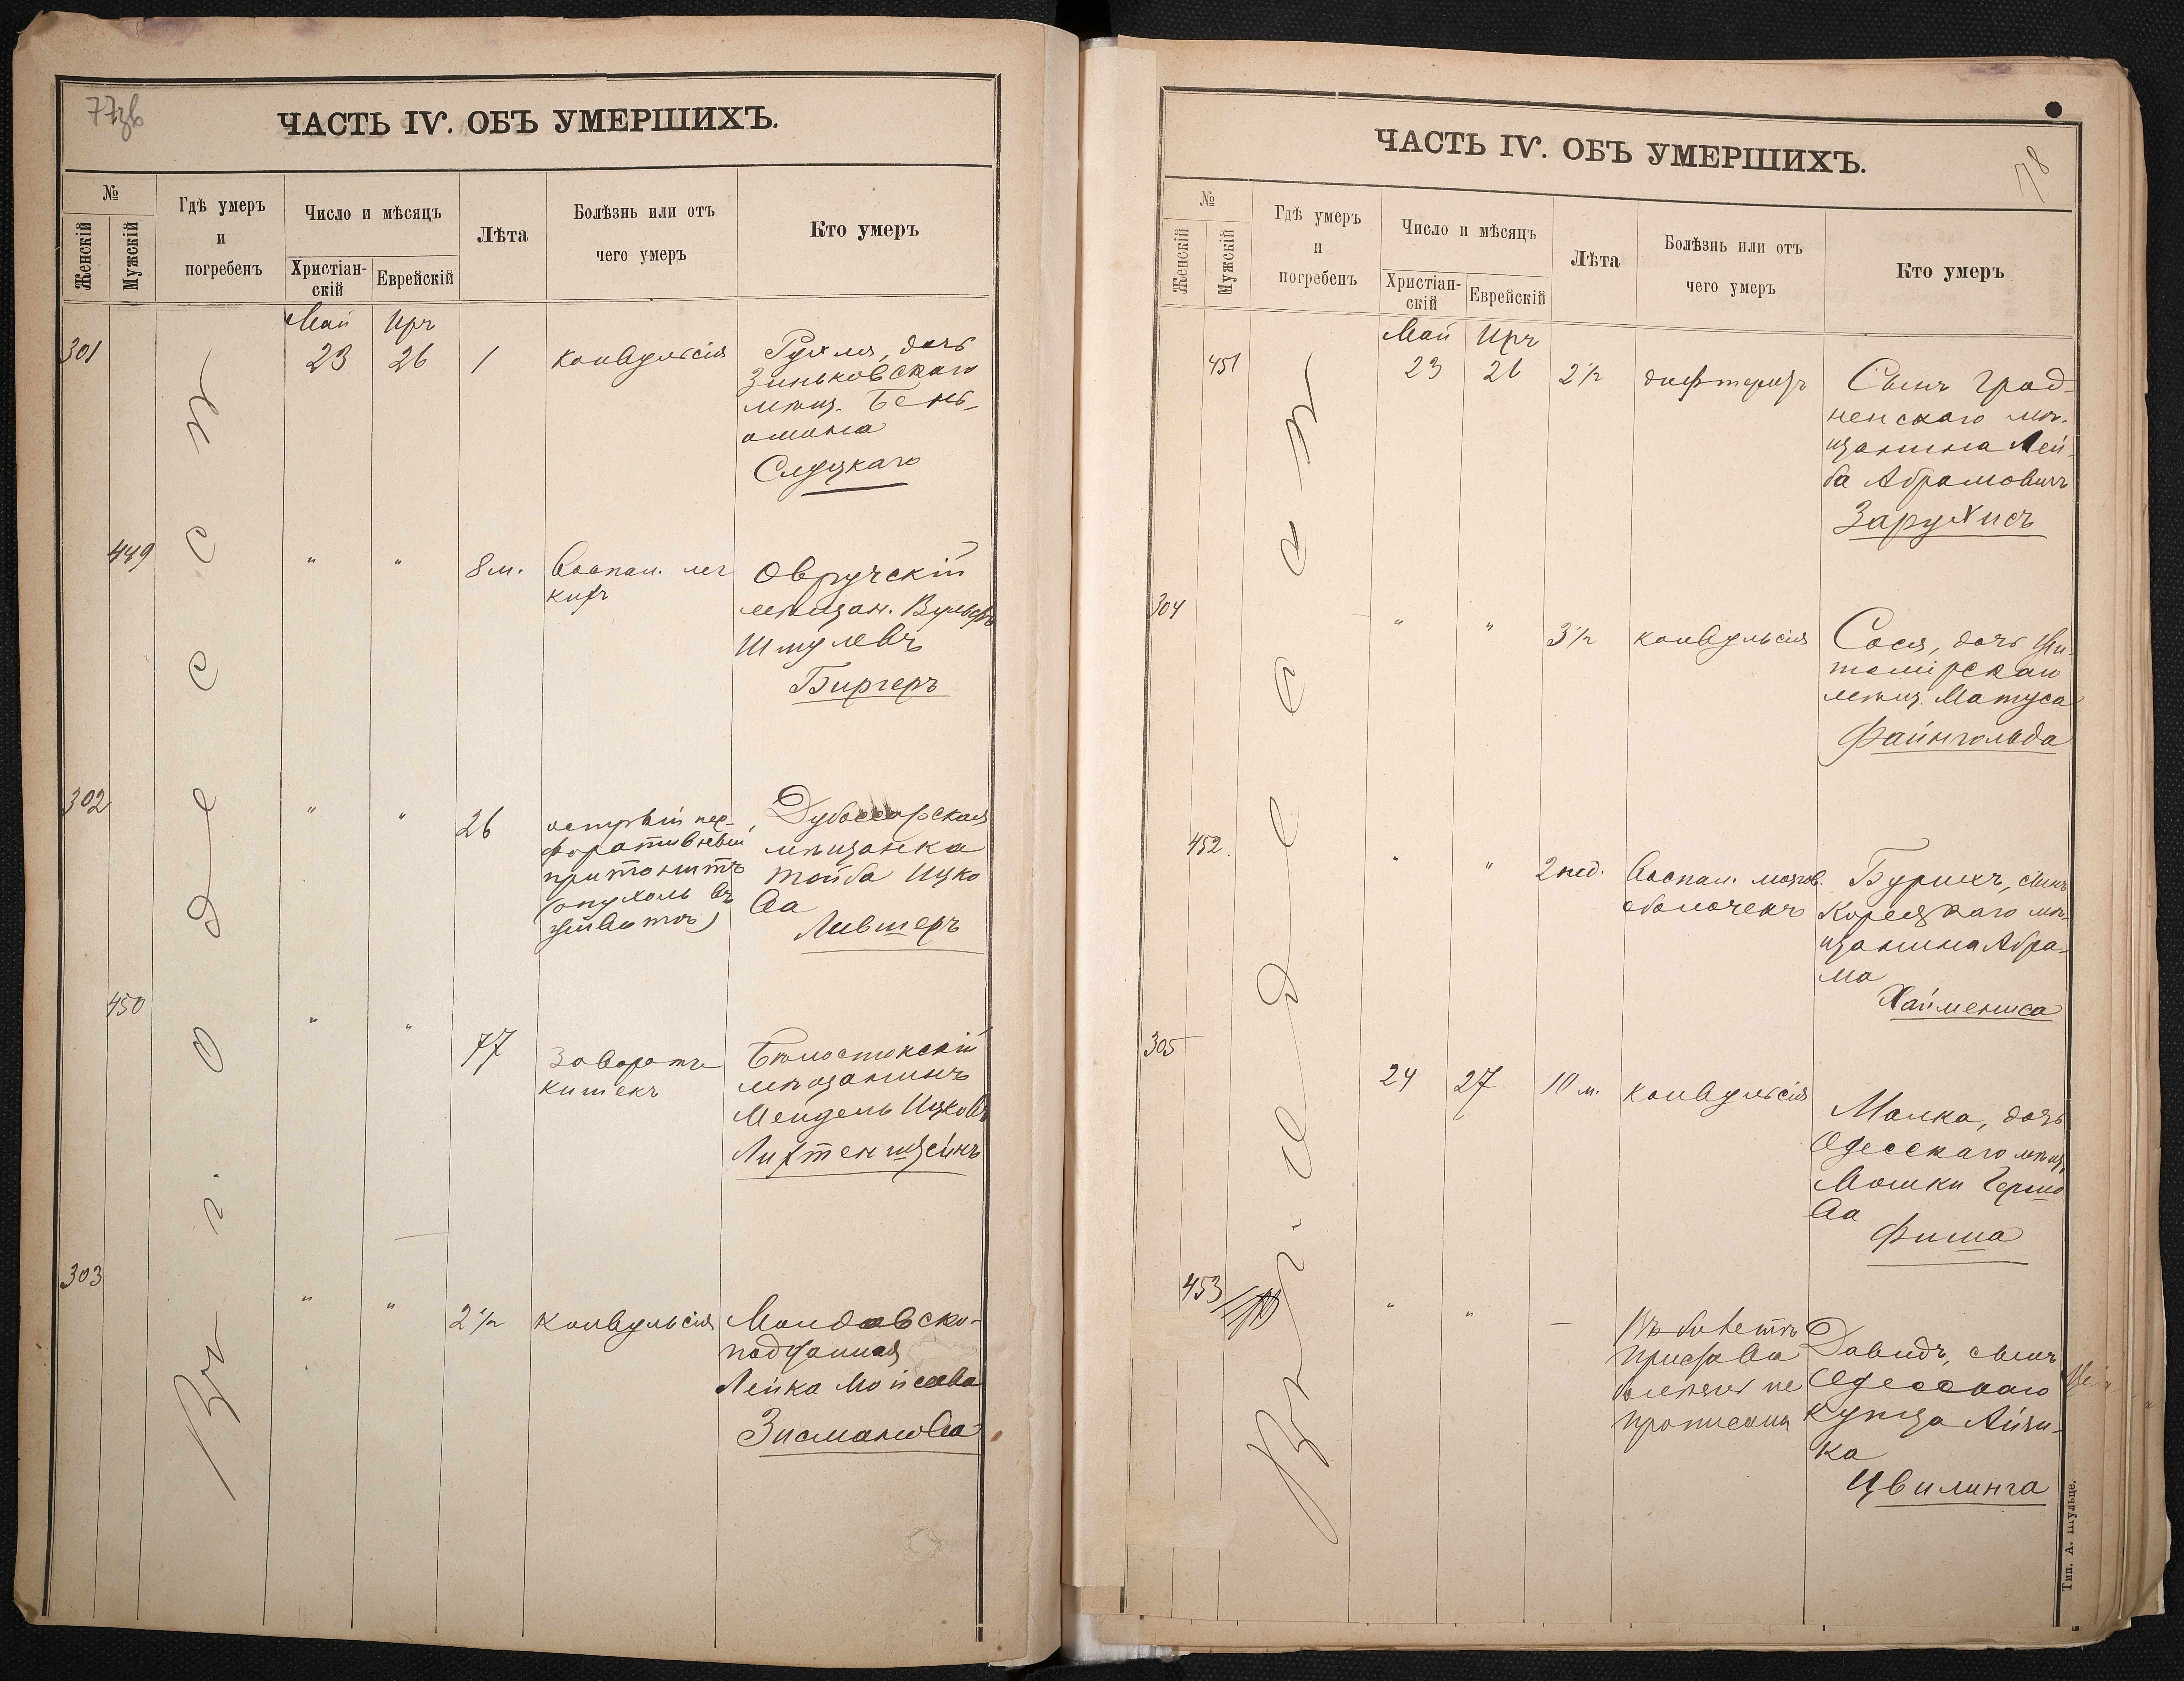 77зв
ЧАСТЬ IV. ОБЪ УМЕРШИХЪ.
№
Женскій
Мужскій
Гдѣ умеръ
и
погребенъ
Число и мѣсяцъ
Христіан-
скій
Еврейскій
Лѣта
Болѣзнь или отъ
чего умеръ
Кто умеръ
Въ г. Одессѣ
Май Иръ
301 23 26 1 конвульсія
Рухля, дочь
Зиньковскаго
мѣщ. Бень-
амина
Слуцкаго
449 " " 8 м. Воспал. лег
кихъ
Овручскій
мѣщан. Вульфъ
Шмулевъ
Биргеръ
302 " " 26 острый пер-
форативный
притонитъ
(опухоль въ
животѣ)
Дубоссарская
мѣщанка
Тойба Ицко
ва
Лившеръ
450 " " 77 Заворотъ
кишекъ
Бѣлостокскій
мѣщанинъ
Мендель Ицковъ
Лихтенштейнъ
303 " " 2 1/2 конвульсія
Молдавско-
подданная
Лейка Мойсеева
Зисманова
78
ЧАСТЬ IV. ОБЪ УМЕРШИХЪ.
№
Женскій
Мужскій
Гдѣ умеръ
и
погребенъ
Число и мѣсяцъ
Христіан-
скій
Еврейскій
Лѣта
Болѣзнь или отъ
чего умеръ
Кто умеръ
Въ г. Одессѣ
Май Иръ
451 23 26 2 1/2 дифтеритъ
Сынъ Град-
ненскаго мѣ-
щанина Лей-
ба Абрамовичъ
Зарухисъ
304 " " 3 1/2 конвульсія
Сося, дочь Жи-
томірскаго
мѣщ. Матуса
Файнгольда
452. " " 2 нед. Воспал. мозгов.
оболочекъ
Бурихъ, сынъ
Корецкаго мѣ-
щанина Абра-
ма
Хаймениса
305 24 27 10 м. конвульсія
Малка, дочь
Одесскаго мѣщ.
Мошки Герше
ва
Фиша
453 " " — Въ билетѣ
пристава
болѣзнь не
прописана
Давидъ, сынъ
Одесскаго
купца Айзи-
ка
Цвилинга
Тип. А. Шульце.